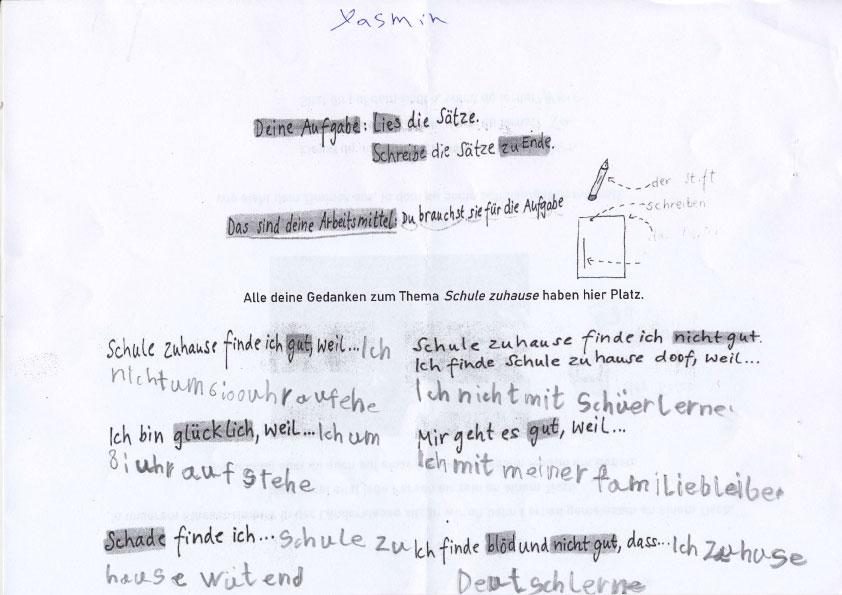 Yasmin
Deine Aufgabe: Lies die Sätze.
Schreibe die Sätze zu Ende.
der Stift
schreiben
Das sind deine Arbeitsmittel: Du brauchst sie für die Aufgabe
Alle deine Gedanken zum Thema Schule zuhause haben hier Platz.
Schule zuhause finde ich gut, weil... Ich
nicht um 6:00 uhr aufehe
Ich bin glücklich, weil... Ich um
8: uhr auf stehe
Schade finde ich... Schule zu
hause wütend
Schule zuhause finde ich nicht gut.
Ich finde Schule zuhause doof, weil...
Ich nicht mit Schüerlerne.
Mir geht es gut, weil...
Ich mit meiner familiebleiber
Ich finde blöd und nicht gut, dass... Ich zuhuse
Deutschlerne